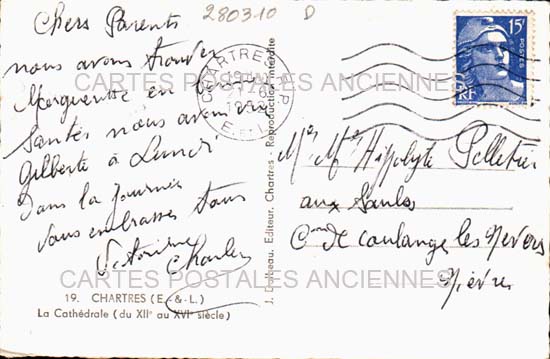 280310 D
Chers Parents
nous avons trouvé
Marguerite en b
Santé nous avons
Gilberte à Lundi
Dans la journée
Vous embrasse tous
Charles
CHARTRES
E. et L.
15f
POSTES
RF
Mr Me Hippolyte Pelletier
aux Saules
Cne de Coulange les Nevers
Nièvre
J. Editeur, Chartres - Reproduction interdite
CARTES POSTALES ANCIENNES
CARTES POSTALES ANCIENNES
19. CHARTRES (E.-&-L.)
La Cathédrale (du XIIe au XVIe siècle)